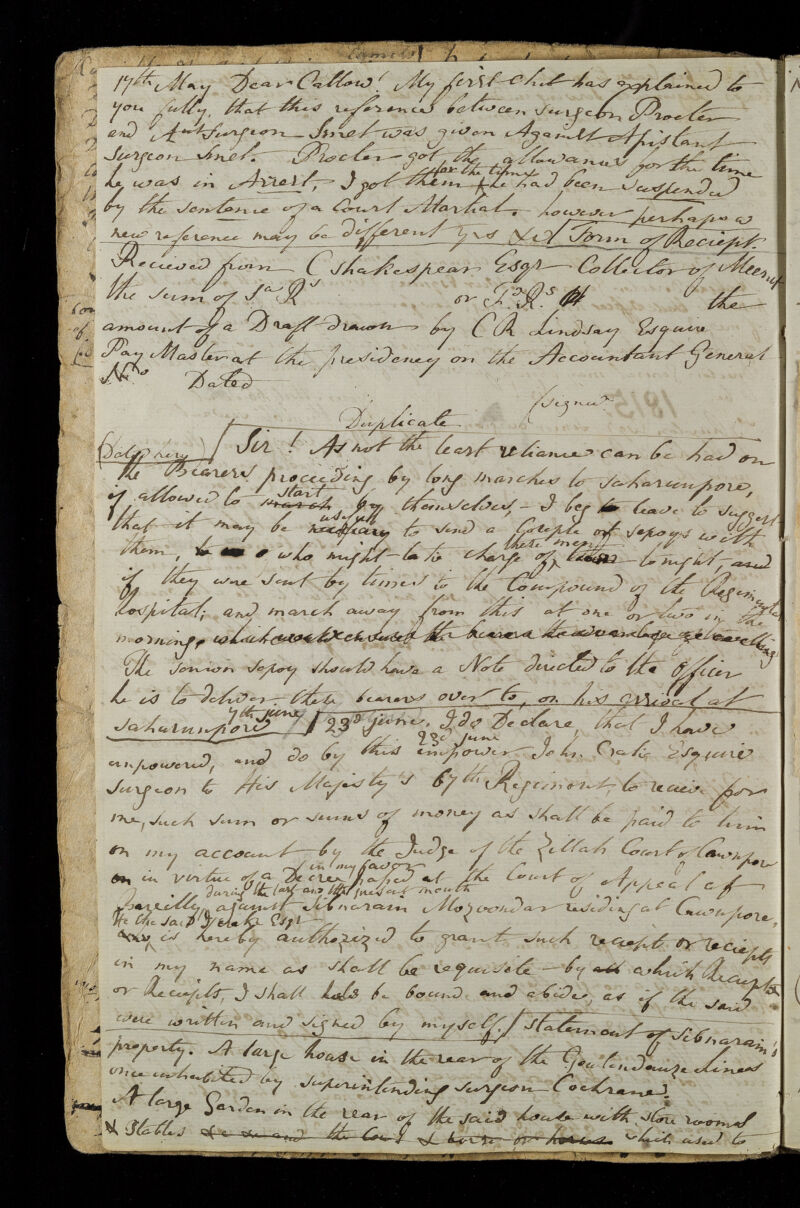 17th May Dear Callow! My first Chit has explained to
you fully, that this reference between Surgeon Procter
and Asst Surgeon Smet was given Against Assistant
Surgeon Smet. Procter got the allowances for the time
he was in Arrest, I got them for the time he had been suspended
by the sentence of a Court Martial. however perhaps a
new reference may be different yrs &c Form of Reciept.
Recieved from C Shakespear Esqr Collector of Meerut
the sum of Sa Rs or Fd. Rs. the
amount of a Draft drawn by C R Lindsay Esquire
Pay Master at the presidency on the Accountant General
No. Dated
(signed
Duplicate
Sir! As not the least reliance can be had on
the Bearers proceeding by long marches to Saharunpore,
if allowed to march start by themselves, - I beg to leave to suggest
that it may be necessary useful to send a Couple of sepoys with
them, who might take charge of these men tonight, and
if they were sent by times to the Compound of the Regimental
Hospital; and march away from this at one or two in the
morning, which would ensure the bearers the advantage of travelling
The senior sepoy should have a Note directed to the Officer
he is to deliver these bearers over to, on his arrival at
Saharunpore 7th June / 23d June. I do Declare, that I have
empowered, and do by this 23d June empower John Crake Esquire
Surgeon to His Majesty's 67th Regiment, to recieve for
me, such sum or sums of money as shall be paid to him
on my account by the Judge of the Zillah Court of Cawnpore
on in virtue of a Decree in my favor passed at the Court of Appeal of
Bareilly during the last and this present month against Sibnarain Mozoondar residing at Cawnpore,
He the said J Crake Esqr is hereby authorized to grant such reciept or reciepts
in my name as shall be requisite - by which Reciept
or Reciepts, I shall hold be bound and abide, as if the said
were written and signed by myself. / Statement of Sibnarain's
property. A large house in the rear of the Goulendauze Lines
once inhabited by Superintending Surgeon Cochrane.
A large Garden in the rear of the said house with store rooms
& Stables and the Cows & horse or horses which used to